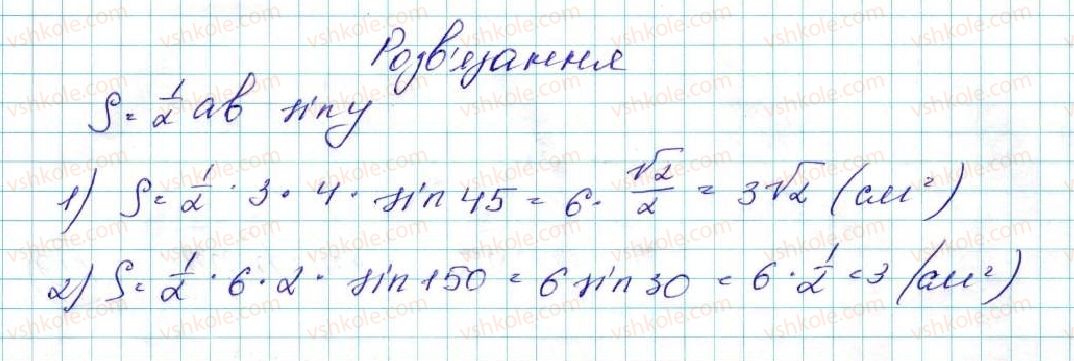 Розв'язання
S = 1/2 ab sin γ
1) S = 1/2 · 3 · 4 · sin 45 = 6 · √2/2 = 3√2 (см²)
2) S = 1/2 · 6 · 2 · sin 150 = 6 sin 30 = 6 · 1/2 = 3 (см²)
vshkole.com